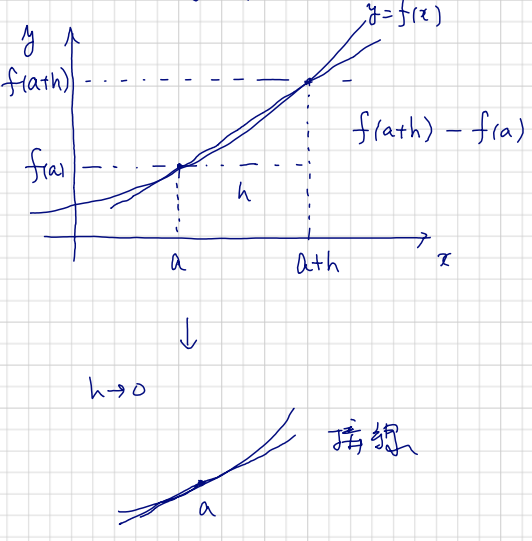 y
y=f(x)
f(a+h)
f(a+h) - f(a)
f(a)
h
a
a+h
x
↓
h→0
接線
a